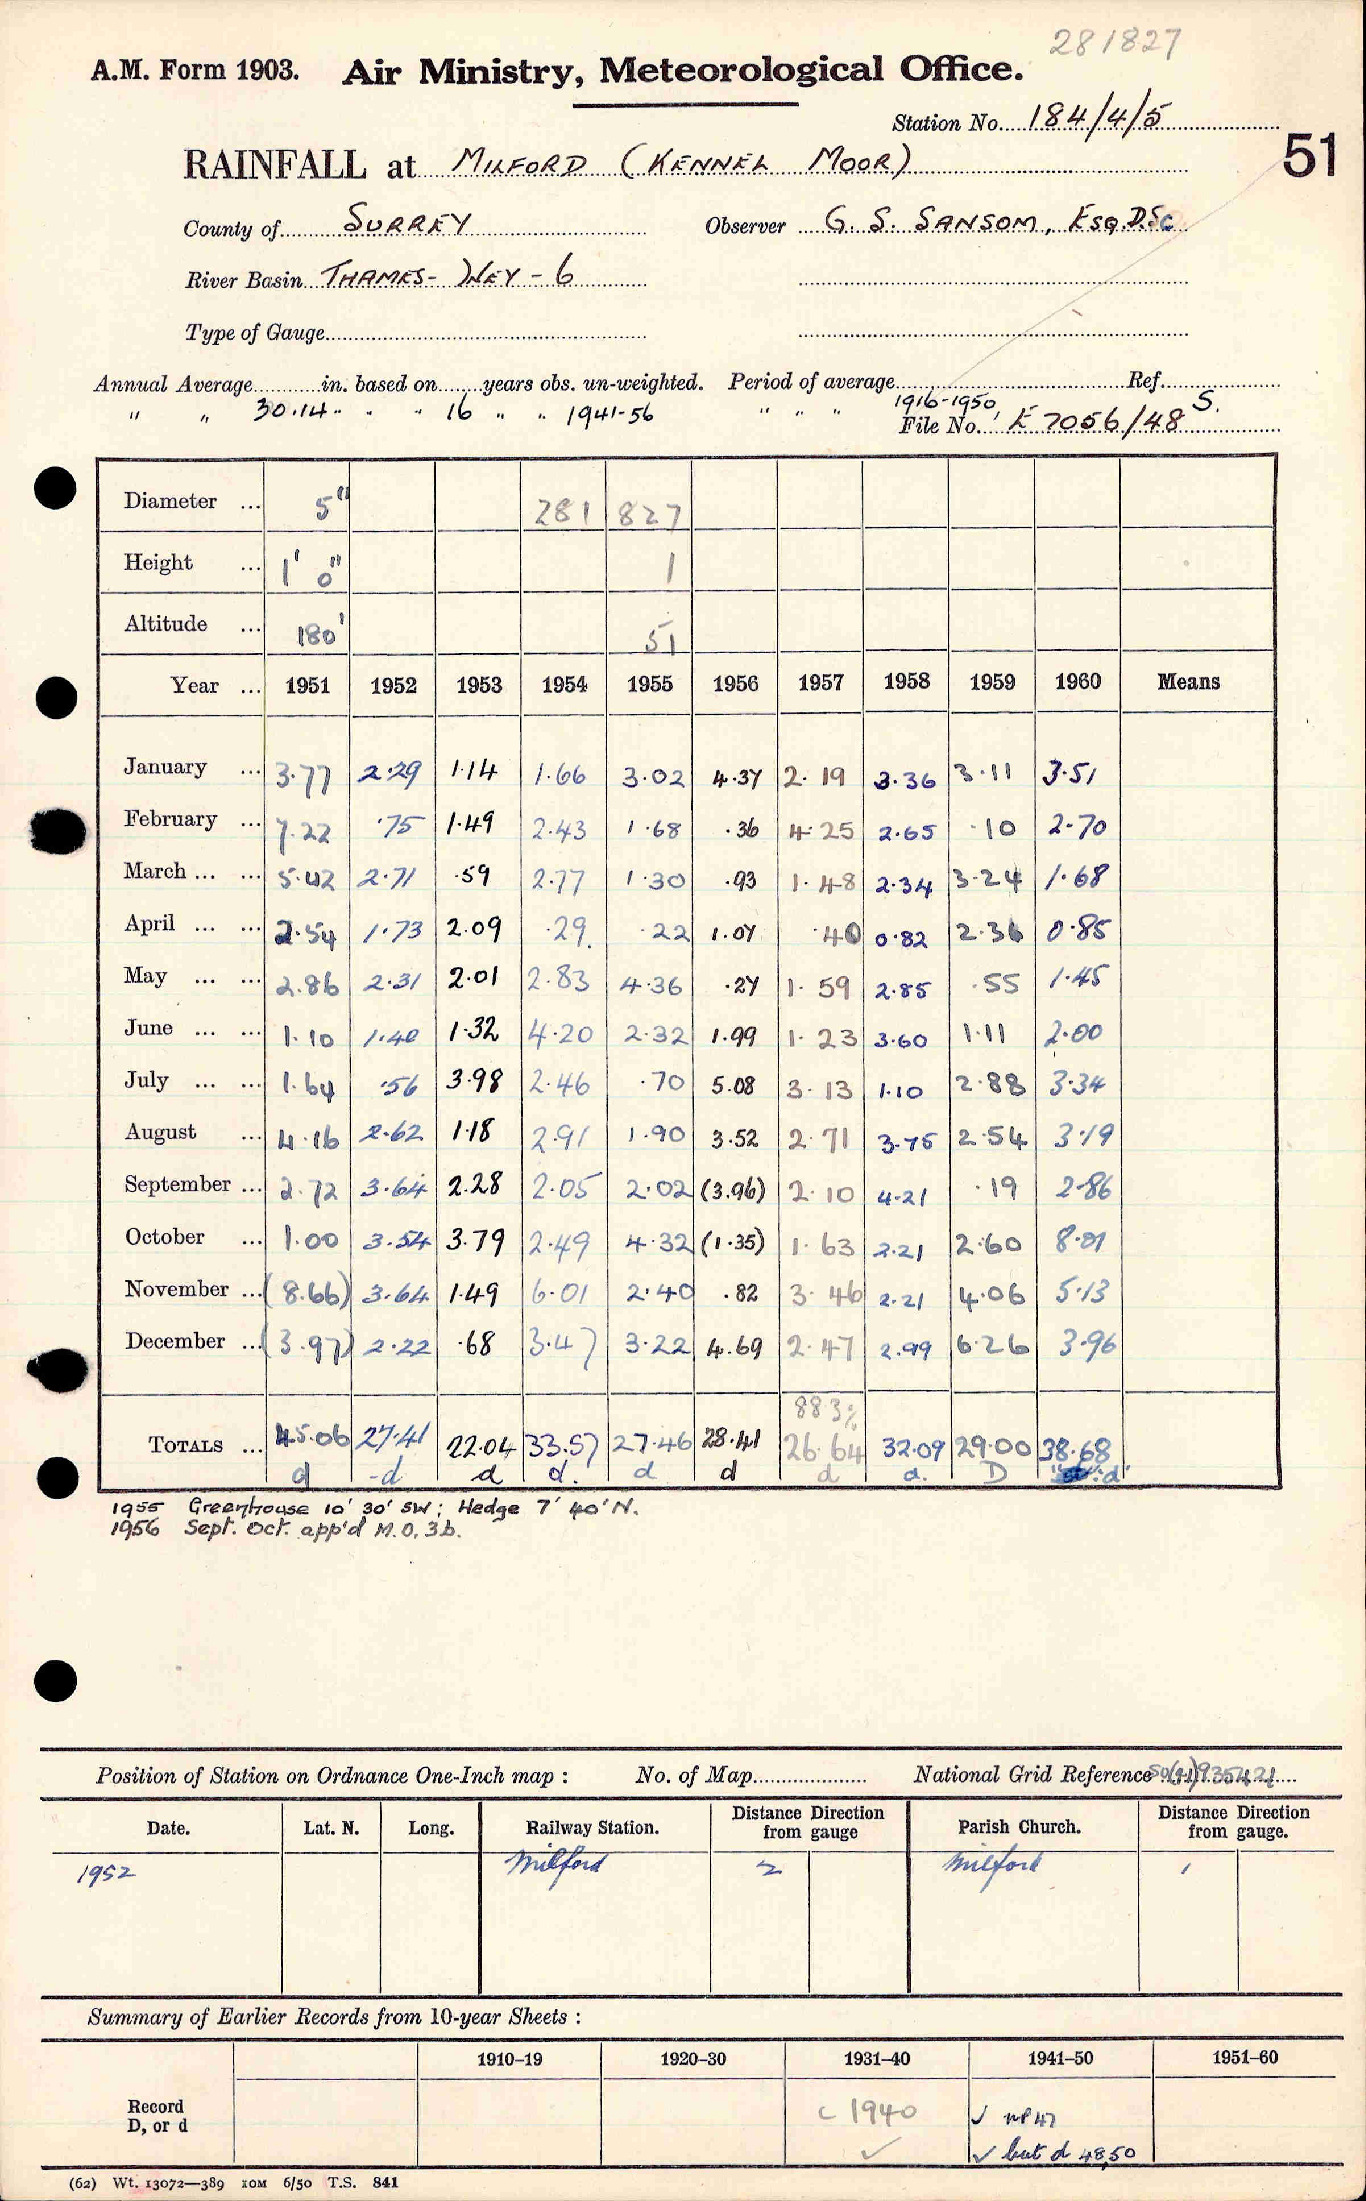 281827
A.M. Form 1903. Air Ministry, Meteorological Office.
Station No. 184/4/5
51
RAINFALL at MILFORD (KENNEL MOOR)
County of SURREY Observer G. S. SANSOM, ESQ. D.Sc
River Basin THAMES - WEY - 6
Type of Gauge
Annual Average in. based on years obs. un-weighted. Period of average Ref.
" " 30.14 " " " 16 " " 1941-56 " " " 1916-1950 S.
File No. E 7056/48
Diameter ... 5" 281 827
Height ... 1' 0" 1
Altitude ... 180' 51
Year ... 1951 1952 1953 1954 1955 1956 1957 1958 1959 1960 Means
January ... 3.77 2.29 1.14 1.66 3.02 4.37 2.19 3.36 3.11 3.51
February ... 7.22 .75 1.49 2.43 1.68 .36 4.25 2.65 .10 2.70
March ... ... 5.42 2.71 .59 2.77 1.30 .93 1.48 2.34 3.24 1.68
April ... ... 2.54 1.73 2.09 .29 .22 1.07 .40 0.82 2.36 0.85
May ... ... 2.86 2.31 2.01 2.83 4.36 .27 1.59 2.85 .55 1.45
June ... ... 1.10 1.40 1.32 4.20 2.32 1.99 1.23 3.60 1.11 2.00
July ... ... 1.64 .56 3.98 2.46 .70 5.08 3.13 1.10 2.88 3.34
August ... 4.16 2.62 1.18 2.91 1.90 3.52 2.71 3.75 2.54 3.19
September ... 2.72 3.64 2.28 2.05 2.02 (3.96) 2.10 4.21 .19 2.86
October ... 1.00 3.54 3.79 2.49 4.32 (1.35) 1.63 2.21 2.60 8.01
November ... (8.66) 3.64 1.49 6.01 2.40 .82 3.46 2.21 4.06 5.13
December ... (3.97) 2.22 .68 3.47 3.22 4.69 2.47 2.99 6.26 3.96
88.3%
TOTALS ... 45.06 27.41 22.04 33.57 27.46 28.41 26.64 32.09 29.00 38.68
d d d d. d d d d. D d
1955 Greenhouse 10' 30' SW; Hedge 7' 40' N.
1956 Sept. Oct. app'd M.O. 3b.
Position of Station on Ordnance One-Inch map : No. of Map National Grid Reference
Date. Lat. N. Long. Railway Station. Distance Direction from gauge Parish Church. Distance Direction from gauge.
1952 Milford 2 Milford 1
Summary of Earlier Records from 10-year Sheets :
1910–19 1920–30 1931–40 1941–50 1951–60
Record
D, or d
c 1940 ✓ ✓
✓ but d 48,50
(62) Wt. 13072—389 10M 6/50 T.S. 841